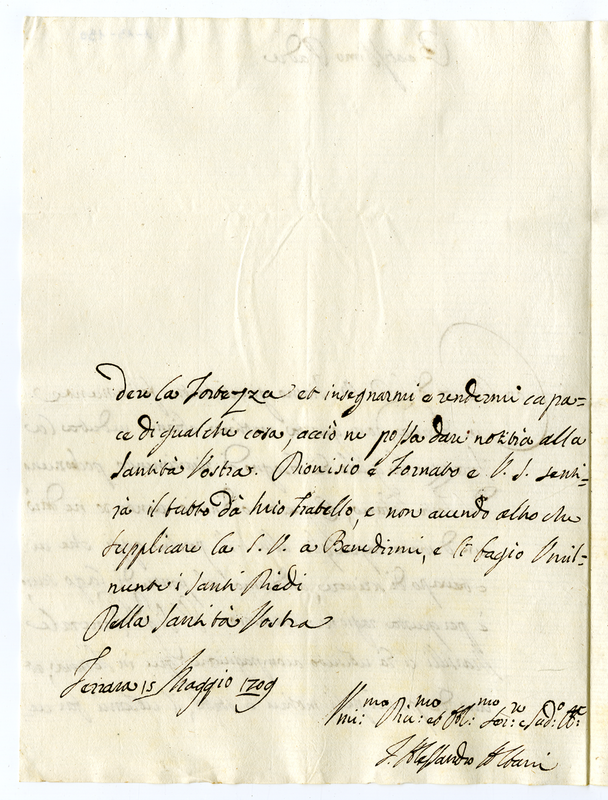 dere la Fortezza et insegnarmi e rendermi capa=
ce di qualche cosa, acciò ne possa dare notitia alla
Santità Vostra. Dionisio è Tornato e V. S. senti=
rà il tutto dà mio fratello, e non avendo altro che
supplicare la S. V. a Benedirmi, e li bagio Umil=
mente i Santi Piedi
Della Santità Vostra
Ferrara 15 Maggio 1709
Umi:mo Di:mo et Ob:mo Ser:re e Sud:o
F. Alessandro Albani